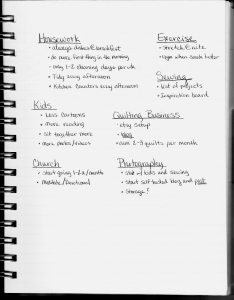 Housework
- always dishes @ breakfast
- do more first thing in the morning
- only 1-2 cleaning days per wk
- Tidy every afternoon
- Kitchen counters every afternoon
Exercise
- stretch @ nite
- gym when sleep better
Sewing
- list of projects
- inspiration board
Kids
- Less cartoons
- More reading
- sit together more
- more parks/
Quilting Business
- etsy setup
- blog
- quilts per month
Church
- start going 1-2x/month
- Devotional
Photography
- kids and sewing
- start self hosted blog and
- storage?